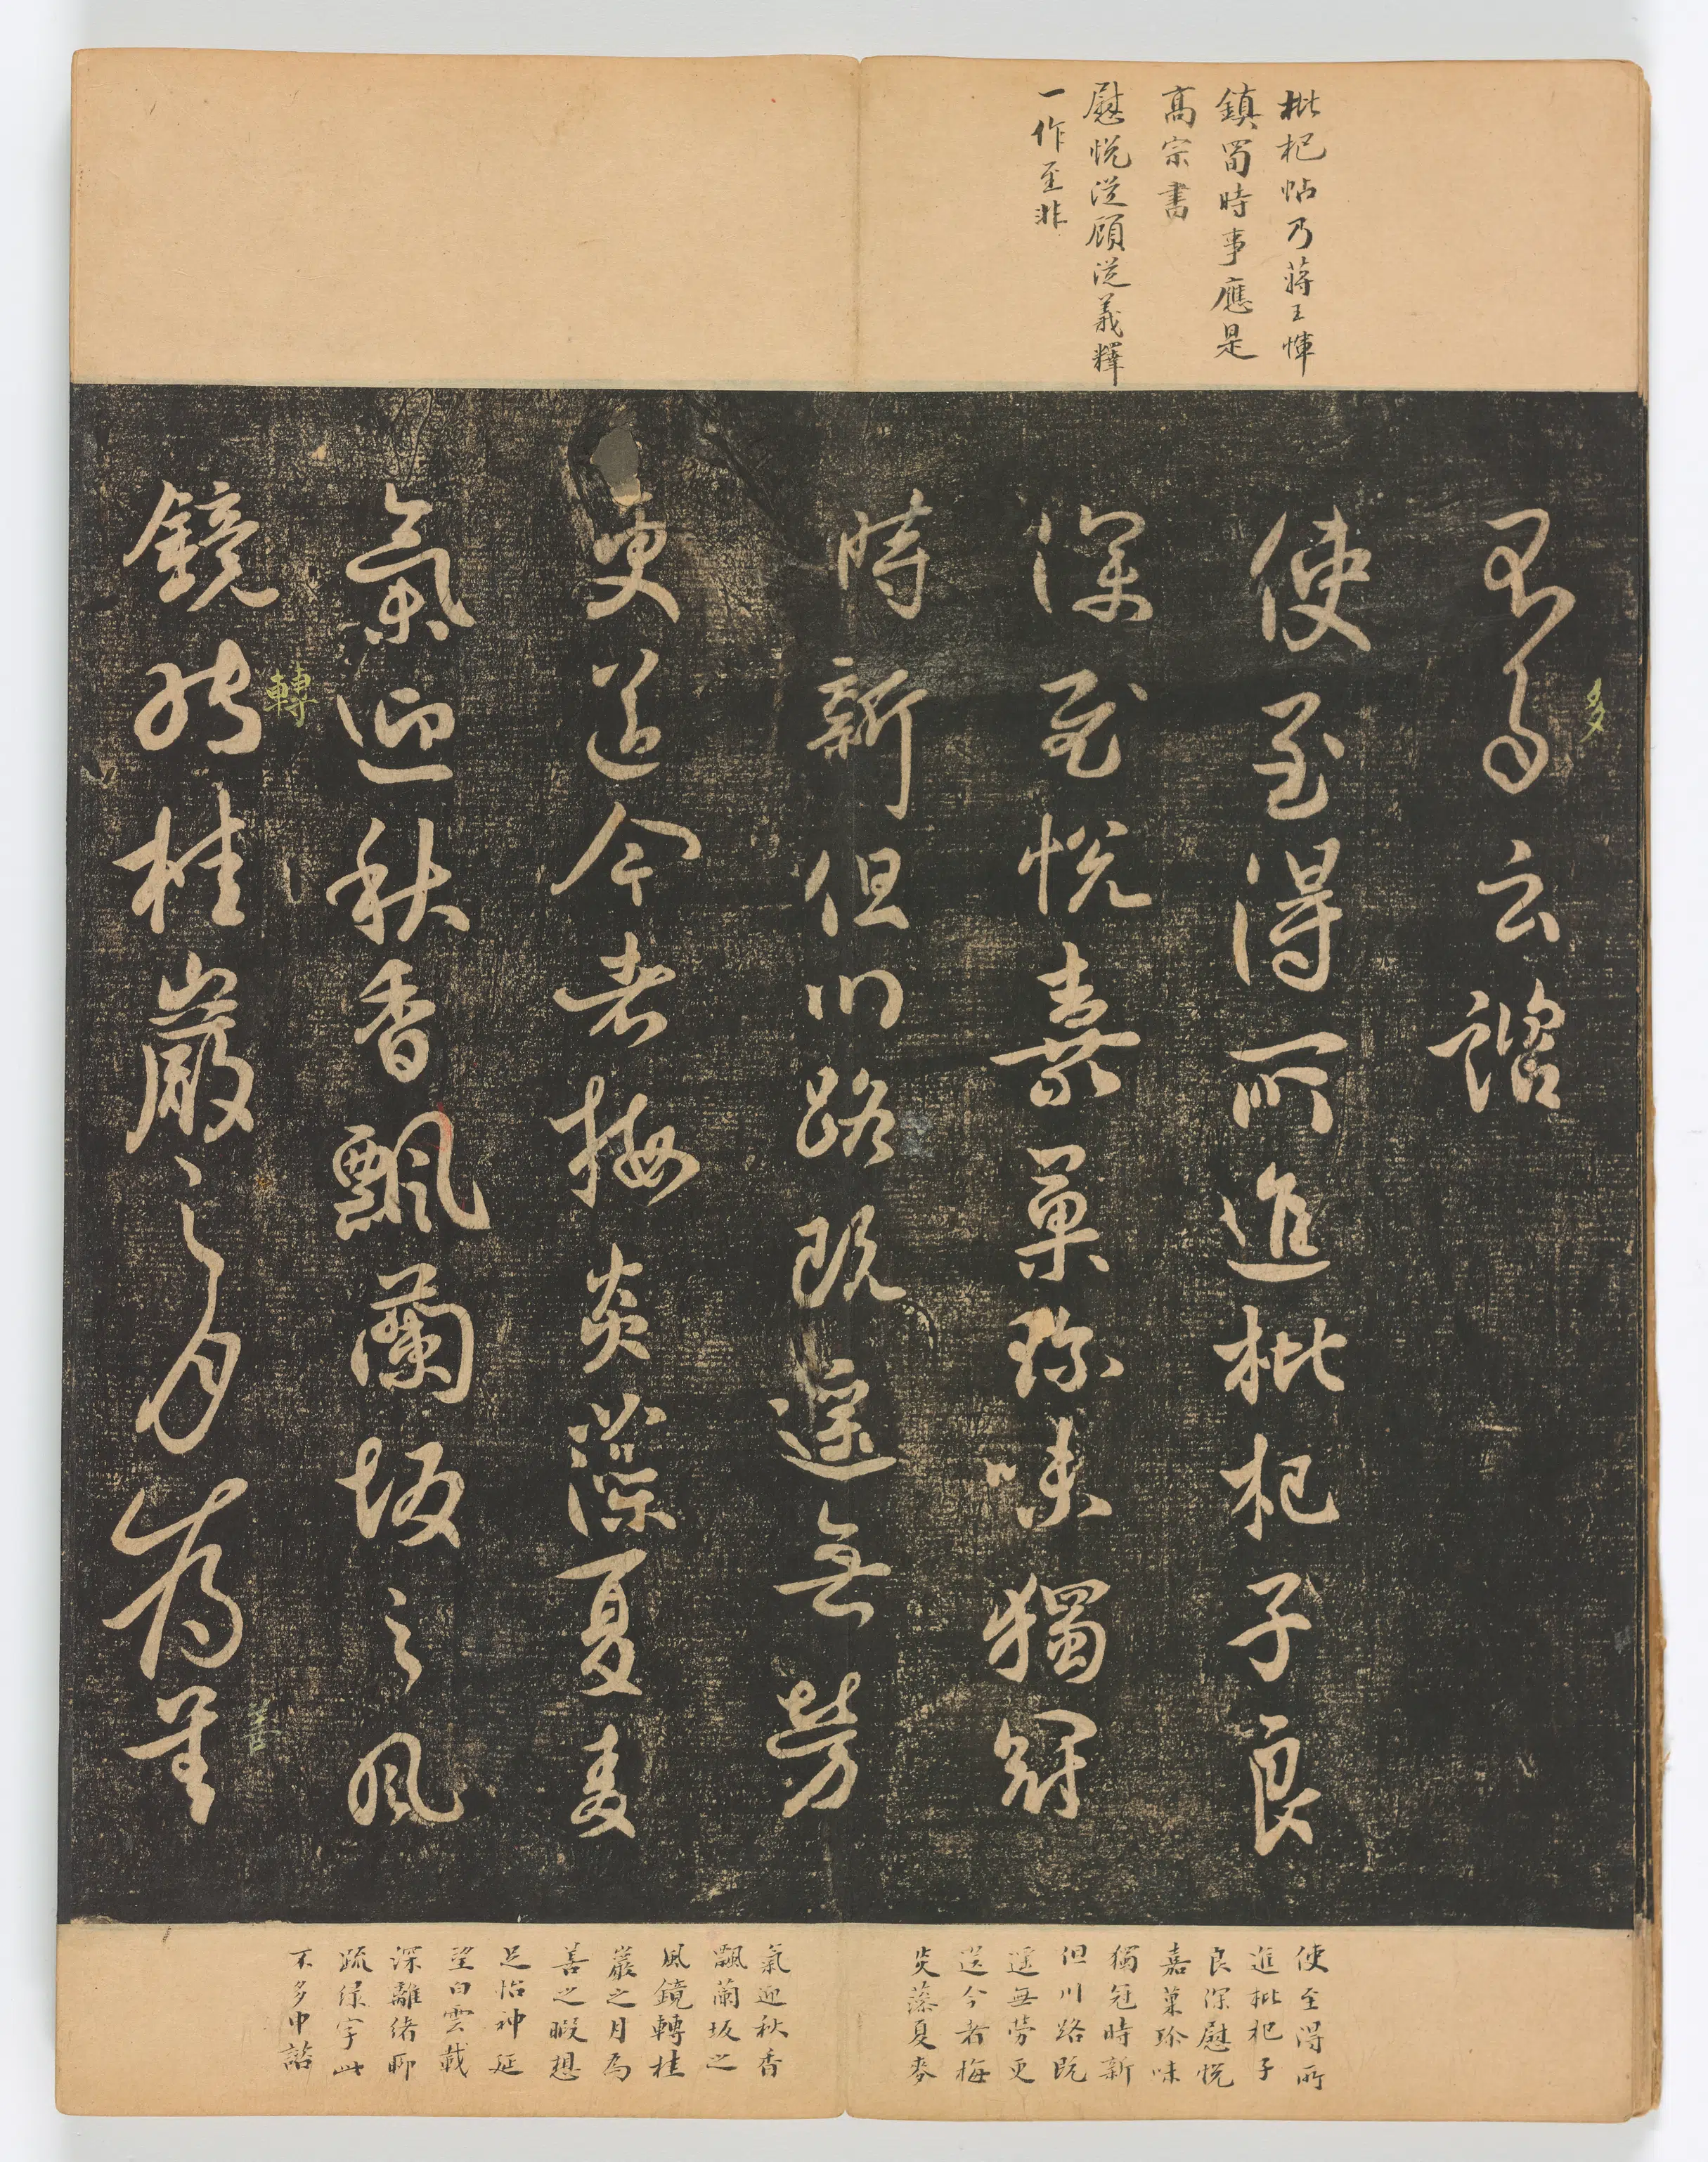 枇杷帖乃蔣王惲
鎮蜀時事應是
高宗書
慰悅從顧從義釋
一作至非
多云諮
多
使至得所進枇杷子良
深慰悅嘉菓珍味獨冠
時新但川路既遙無勞
更送今者梅炎藻夏麥
氣迎秋香飄蘭坂之風
鏡轉桂巖之月為善
轉
善
使至得所
進枇杷子
良深慰悅
嘉菓珍味
獨冠時新
但川路既
遙無勞更
送今者梅
炎藻夏麥
氣迎秋香
飄蘭坂之
風鏡轉桂
巖之月為
善之暇想
足怡神延
望白雲載
深離緒聊
疏字此
不多申諮